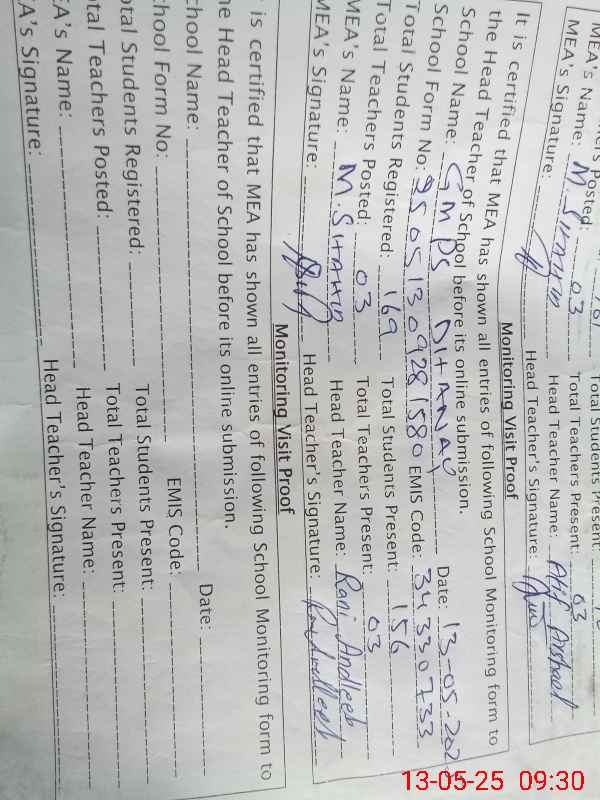 Posted: 03 Total Teachers Present: 03
MEA's Name: M. Head Teacher Name: Atif Arshad
MEA's Signature: Head Teacher's Signature:
Monitoring Visit Proof
It is certified that MEA has shown all entries of following School Monitoring form to
the Head Teacher of School before its online submission.
School Name: GMPS Date: 13-05-202
School Form No: EMIS Code: 34330733
Total Students Registered: 169 Total Students Present: 156
Total Teachers Posted: 03 Total Teachers Present: 03
MEA's Name: M. Head Teacher Name: Rani Andleeb
MEA's Signature: Head Teacher's Signature:
Monitoring Visit Proof
is certified that MEA has shown all entries of following School Monitoring form to
he Head Teacher of School before its online submission.
chool Name: Date:
chool Form No: EMIS Code:
otal Students Registered: Total Students Present:
tal Teachers Posted: Total Teachers Present:
EA's Name: Head Teacher Name:
EA's Signature: Head Teacher's Signature:
13-05-25 09:30